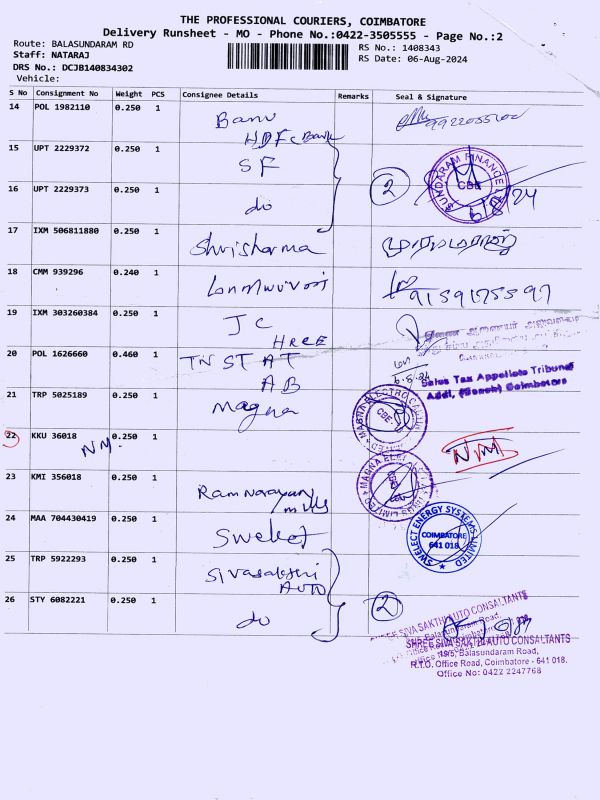 THE PROFESSIONAL COURIERS, COIMBATORE
Delivery Runsheet - MO - Phone No.:0422-3505555 - Page No.:2
Route: BALASUNDARAM RD
RS No.: 1408343
Staff: NATARAJ
RS Date: 06-Aug-2024
DRS No.: DCJB140834302
Vehicle:
S No Consignment No Weight PCS Consignee Details Remarks Seal & Signature
14 POL 1982110 0.250 1 Banu
HDFC Bank
15 UPT 2229372 0.250 1 SF
SUNDARAM FINANCE
CBE
2
6/8/24
16 UPT 2229373 0.250 1 do
17 IXM 506811880 0.250 1 Shrisharma
18 CMM 939296 0.240 1
9159175597
19 IXM 303260384 0.250 1 JC
HRCE
20 POL 1626660 0.460 1 TNSTAT
AB
6.8.24
Sales Tax Appellate Tribunal
Addl. (Bench) Coimbatore
21 TRP 5025189 0.250 1 Magna
MAGNA ELECTRO
CBE
22 KKU 36018 0.250 1
NM
NM
23 KMI 356018 0.250 1 Ramnarayan
mills
MAGNA
LIMITED
24 MAA 704430419 0.250 1 Swelect
SWELECT ENERGY SYSTEMS LIMITED
COIMBATORE
641 018.
25 TRP 5922293 0.250 1 Sivasakthi
Auto
26 STY 6082221 0.250 1 do
2
SHREE SIVA SAKTHI AUTO CONSALTANTS
SHREE SIVA SAKTHI AUTO CONSALTANTS
19/5, Balasundaram Road,
R.T.O. Office Road, Coimbatore - 641 018.
Office No: 0422 2247768